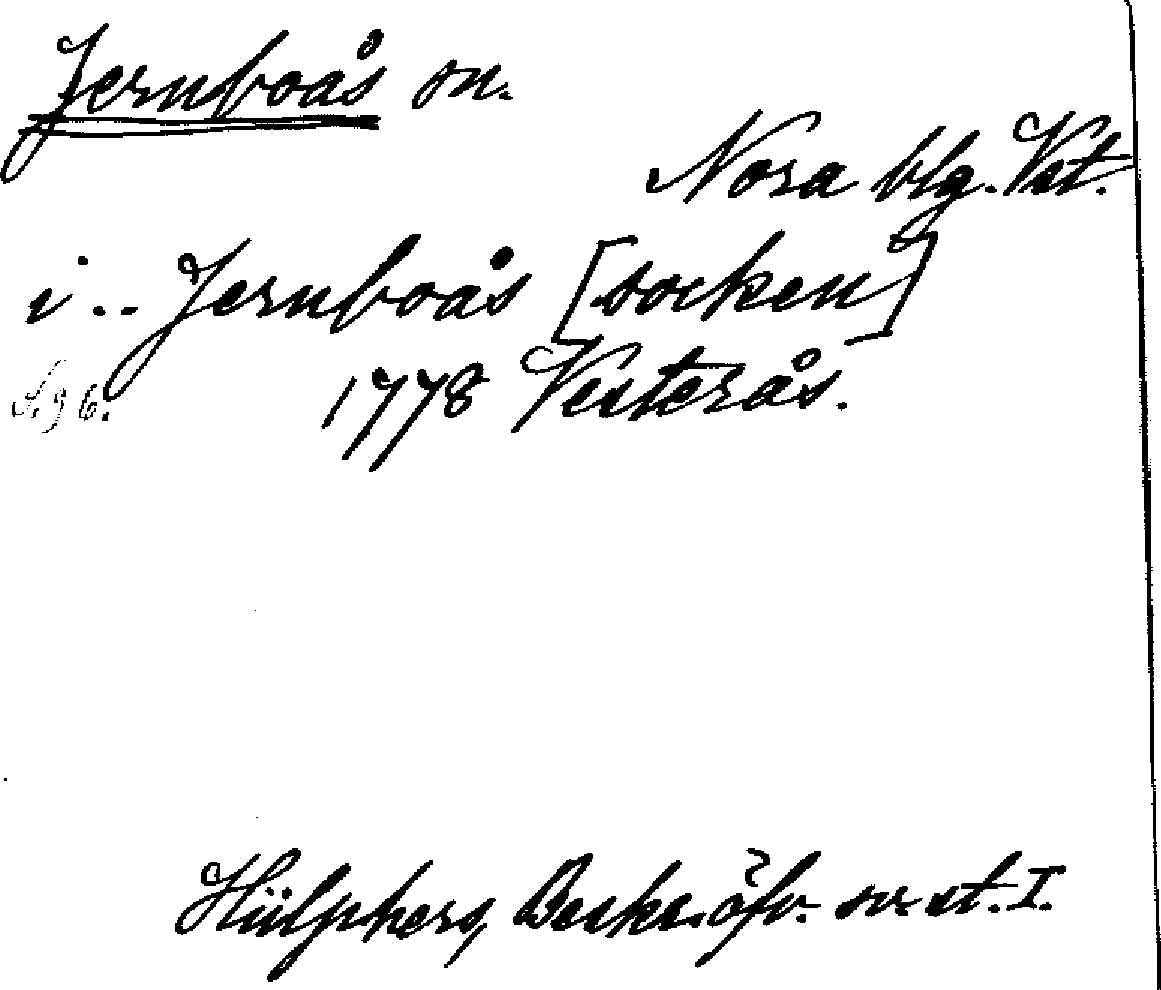 Jernboås sn.
Nora blg. Vst.
i .. Jernboås [socken]
S. 96. 1778 Vesterås.
Hülphers, Beskr. öfv. sv. st. I.